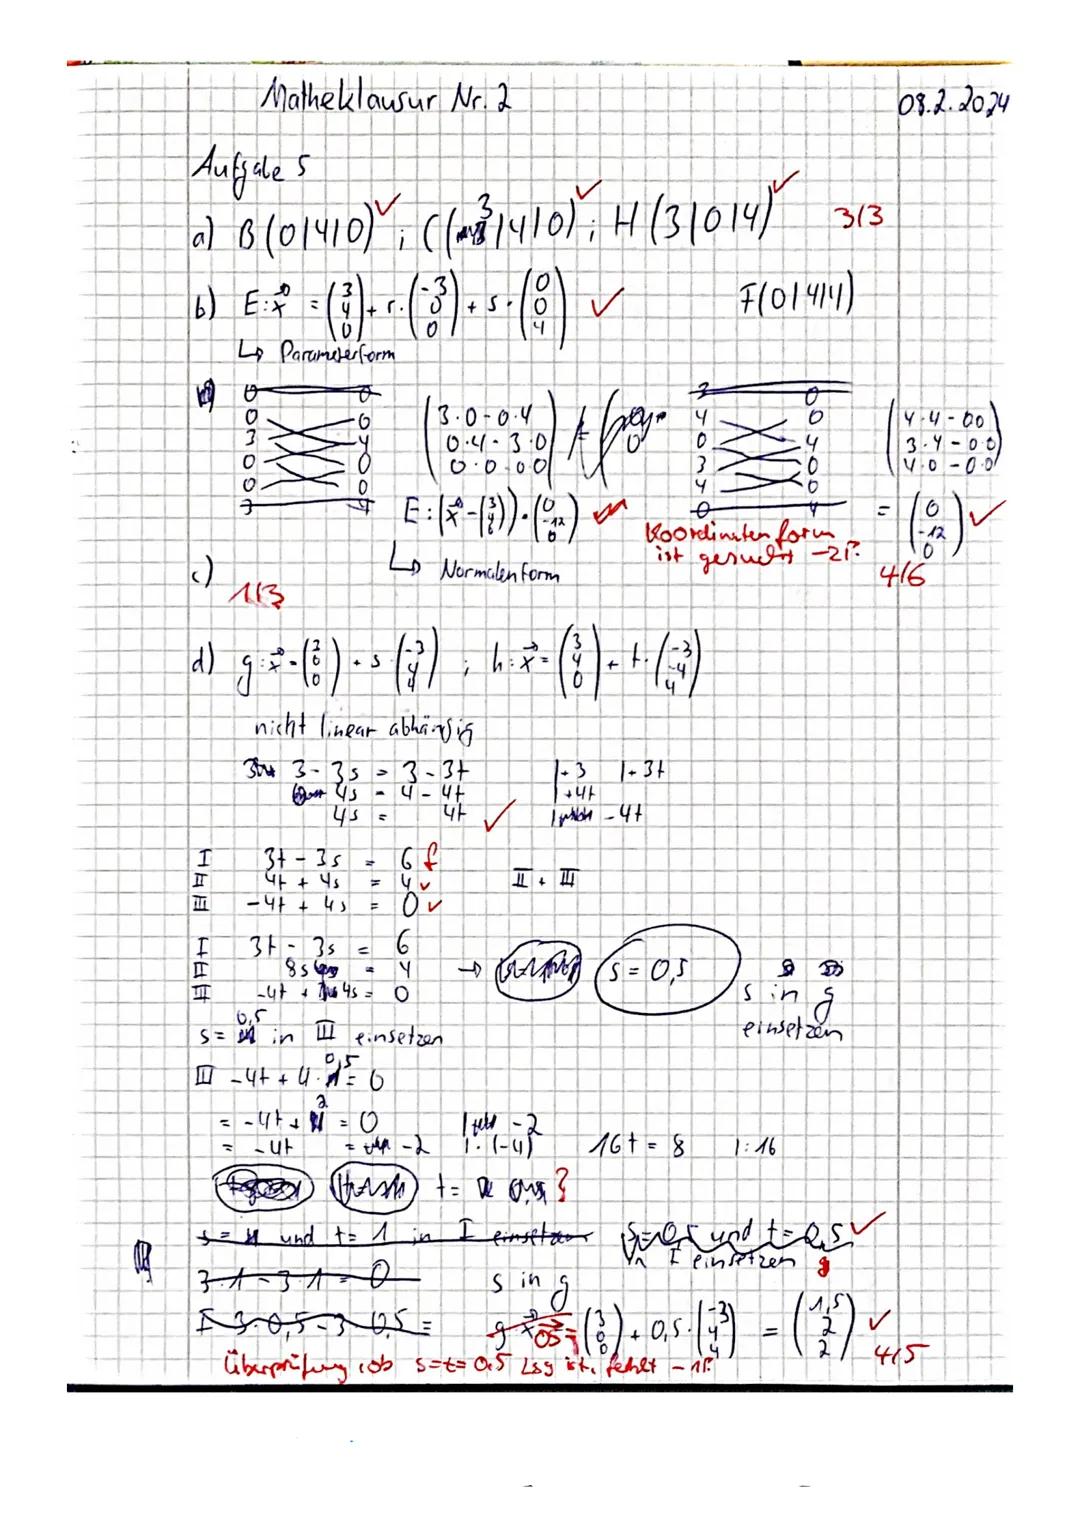 Matheklausur Nr. 2 08.2.2024
Aufgabe 5
a) B (0|4|0) ✓; C (3|4|0) ✓; H (3|0|4) ✓ 3/3
b) E: x⃗ = (3 4 0) + r · (-3 0 0) + s · (0 0 4) ✓ F(0|4|4)
↳ Parameterform
0 0 3 0
0 0 4 0
3 4 0 4
0 0 3 0
0 0 4 0
3 4 0 4
(3·0-0·4 0·4-3·0 0·0-0·0)
(4·4-0·0 3·4-0·0 4·0-0·0)
E: (x⃗ - (3 4 0)) · (0 -12 0) ✓ = (0 -12 0) ✓
Koordinatenform
ist gesucht -2P.
↳ Normalenform 4/6
c) 1/3
d) g: x⃗ = (3 0 0) + s (-3 4 4) ; h: x⃗ = (3 4 0) + t · (-3 -4 4)
nicht linear abhängig
3 - 3s = 3 - 3t |+3 |+3t
4s = 4 - 4t |+4t
4s = 4t ✓ | - 4t
I 3t - 3s = 6 f
II 4t + 4s = 4 ✓ II + III
III -4t + 4s = 0 ✓
I 3t - 3s = 6
II 8s = 4 → s = 0,5
III -4t + 4s = 0
s in g
einsetzen
s = 0,5 in III einsetzen
III -4t + 4 · 0,5 = 0
= -4t + 2 = 0 | -2
= -4t = -2 | · (-4) 16t = 8 |:16
t =
s = und t = 1 in I einsetzen s = 0,5 und t = 0,5 ✓
in I einsetzen g
3·1 - 3·1 = 0 s in g
I 3·0,5 - 3 0,5 =
g x⃗ OS⃗ = (3 0 0) + 0,5 · (-3 4 4) = (1,5 2 2) ✓
Überprüfung, ob s=t=0,5 Lsg ist, fehlt -1P. 4/5